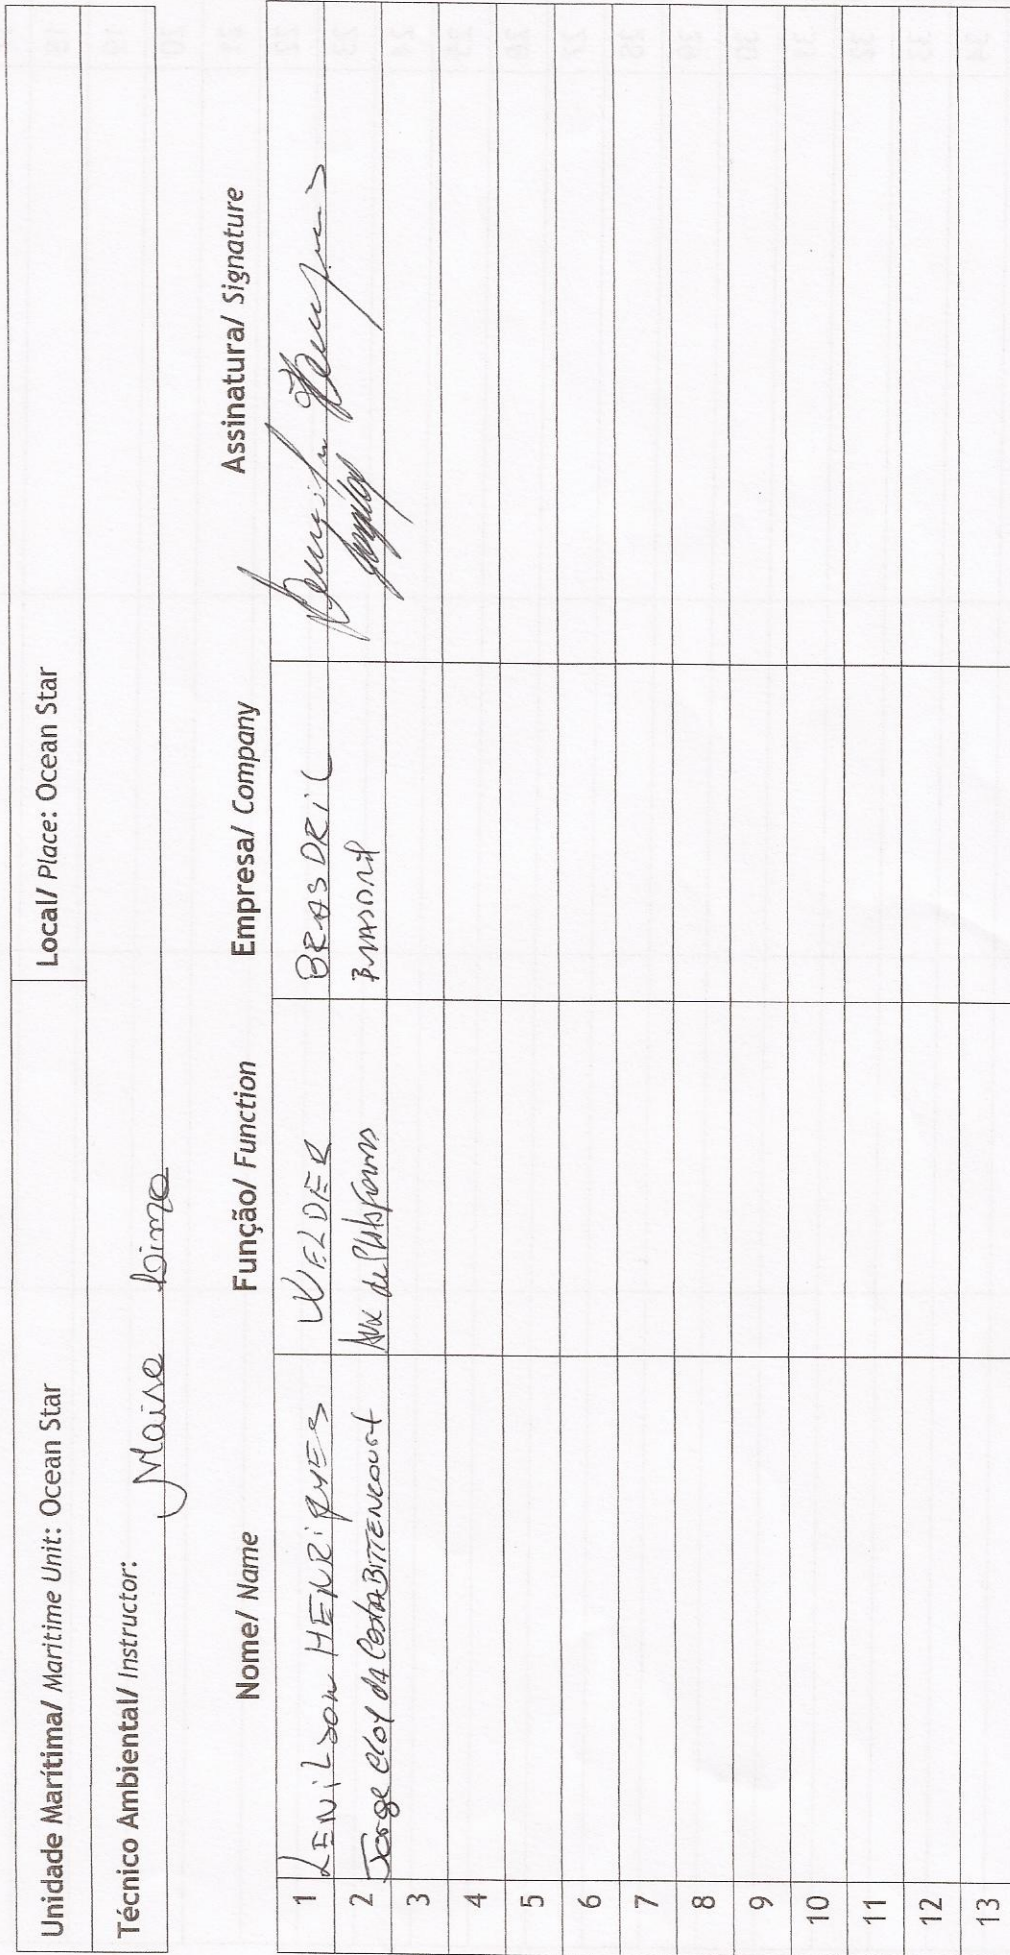 Unidade Marítima/ Maritime Unit: Ocean Star Local/ Place: Ocean Star
Técnico Ambiental/ Instructor: Maise Lima
Nome/ Name Função/ Function Empresa/ Company Assinatura/ Signature
1 LENILSON HENRIQUES WELDER BRASDRIL
2 Jorge Eloy da Costa BITTENCOURT Aux de Plataforma BRASDRIL
3
4
5
6
7
8
9
10
11
12
13